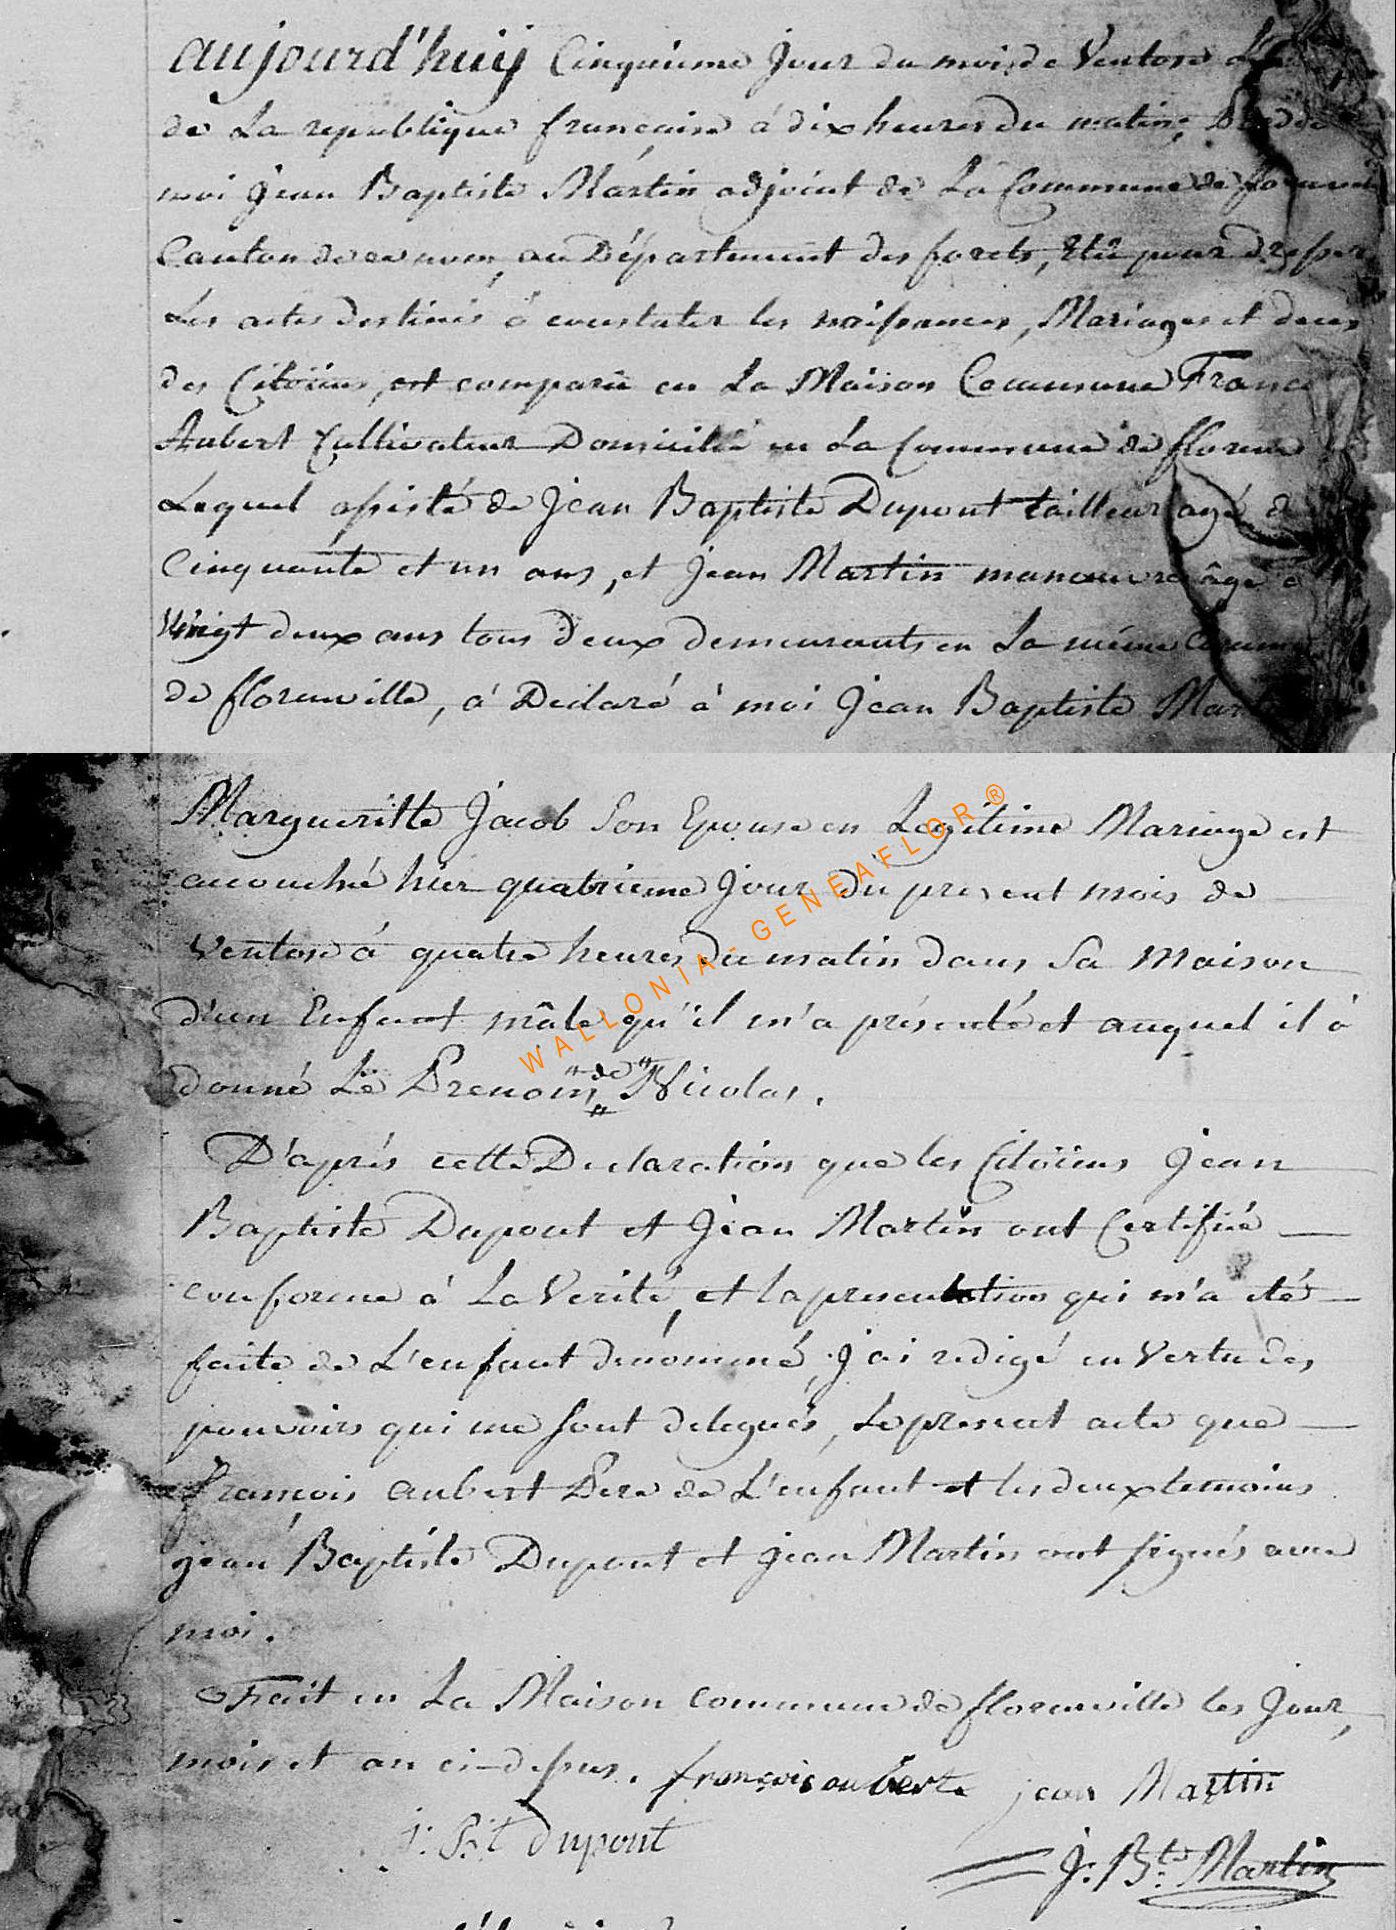 aujourd'huij Cinquieme Jour du mois de Ventose
de La republique françaisse à dix heures du matin,
moi Jean Baptiste Martin adjoint de La Commune de
Canton de ce nom, au Département des forets, Elu pour dresser
Les actes destinés à coustater les naissances, Mariages et deces
des Citoïens, est comparu en La Maison Commune
Aubert Cultivateur Domicilié en La Commune de
Lequel assisté de Jean Baptiste Dupont tailleur agé
Cinquante et un ans, et Jean Martin manoeuvre âgé
Vingt deux ans tous deux demeurants en La même
de florenville, à Declaré à moi Jean Baptiste
Margueritte Jacob Son Epouse en Legitime Mariage est
accouché hier quatrieme Jour du present mois de
Ventose à quatre heures du matin dans Sa Maison
d'un Enfant mâle qu'il m'a présenté et auquel il à
donné Le Prenom "de" Nicolas.
D'après cette Declaration que les Citoïens Jean
Baptiste Dupont et Jean Martin ont Certifié
conforme à La Verité, et la presentation qui m'a été
faite de L'enfant denommé, J'ai redigé en Vertu des
pouvoirs qui me sont delegués, Le present acte que
françois aubert Pere de L'enfant et les deux temoins
jean Baptiste Dupont et jean Martin ont signés avec
moi.
Fait en La Maison commune de florenville les Jour,
mois et an ci-dessus. françois auberte jean Martin
J: Bt dupont
J: Bte Martin
WALLONIA - GENEAFLOR®